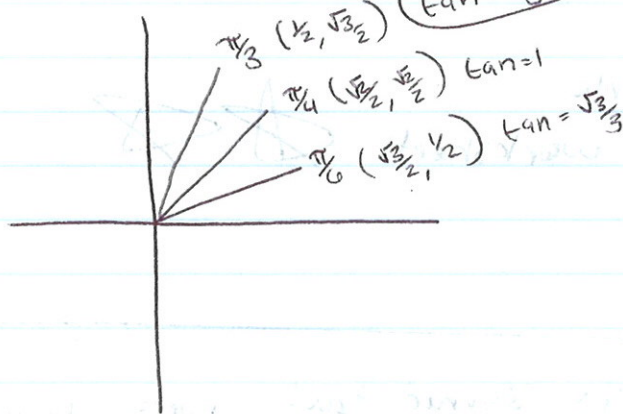 π/3 (1/2, √3/2) tan
π/4 (√2/2, √2/2) tan=1
π/6 (√3/2, 1/2) tan = √3/3